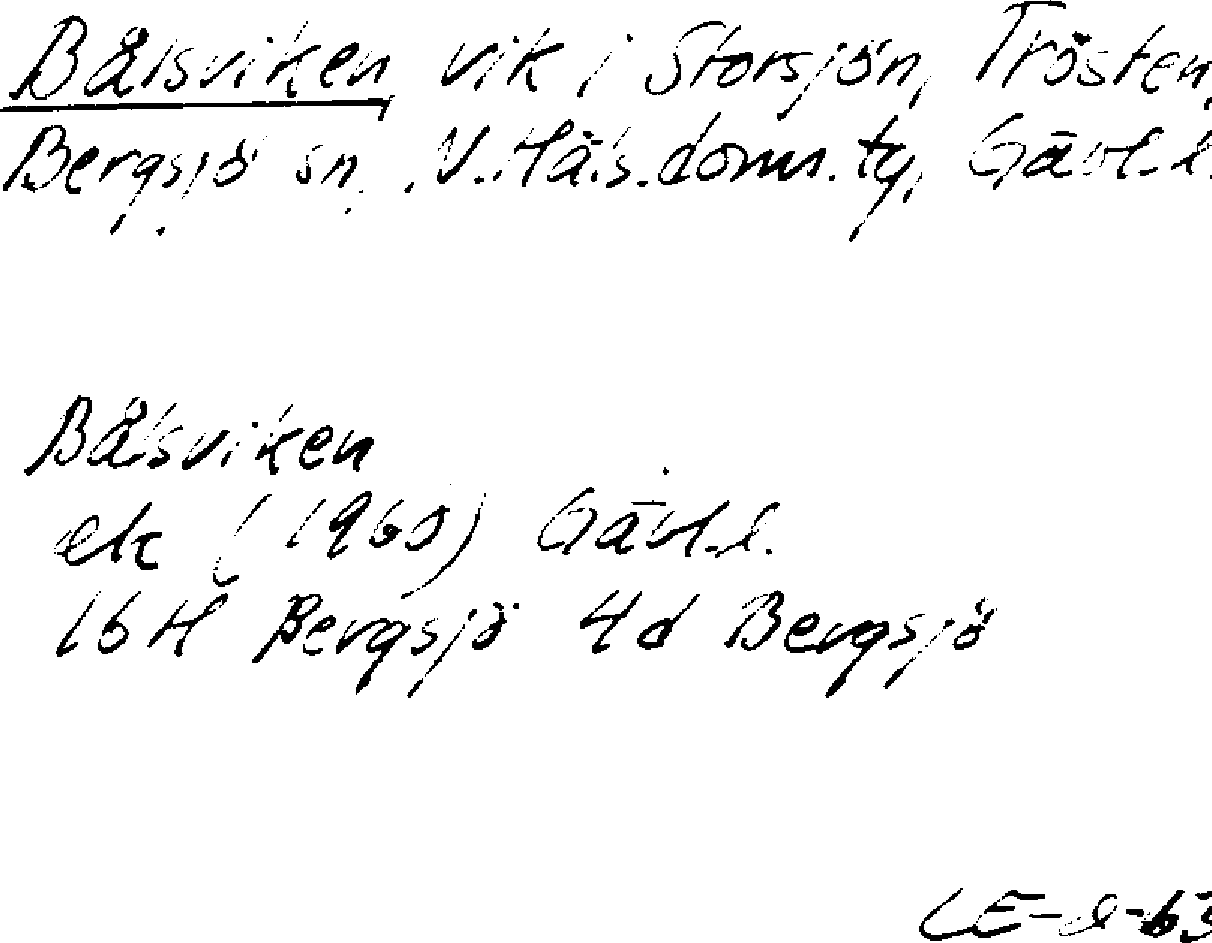 Bålsviken, vik i Storsjön, Trösten,
Bergsjö sn, N. Häls. doms. ty, Gävl. l.
Bålsviken
ek (1960) Gävl. l.
16H Bergsjö 4d Bergsjö